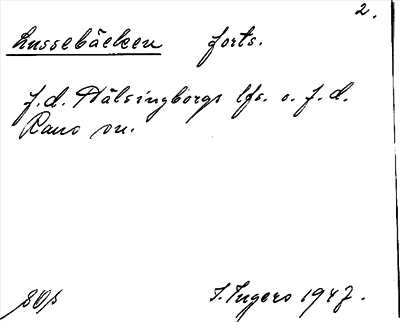 2.
Lussebäcken forts.
f.d. Hälsingborgs lfs. o. f.d.
Raus sn.
I. Ingers 1947.